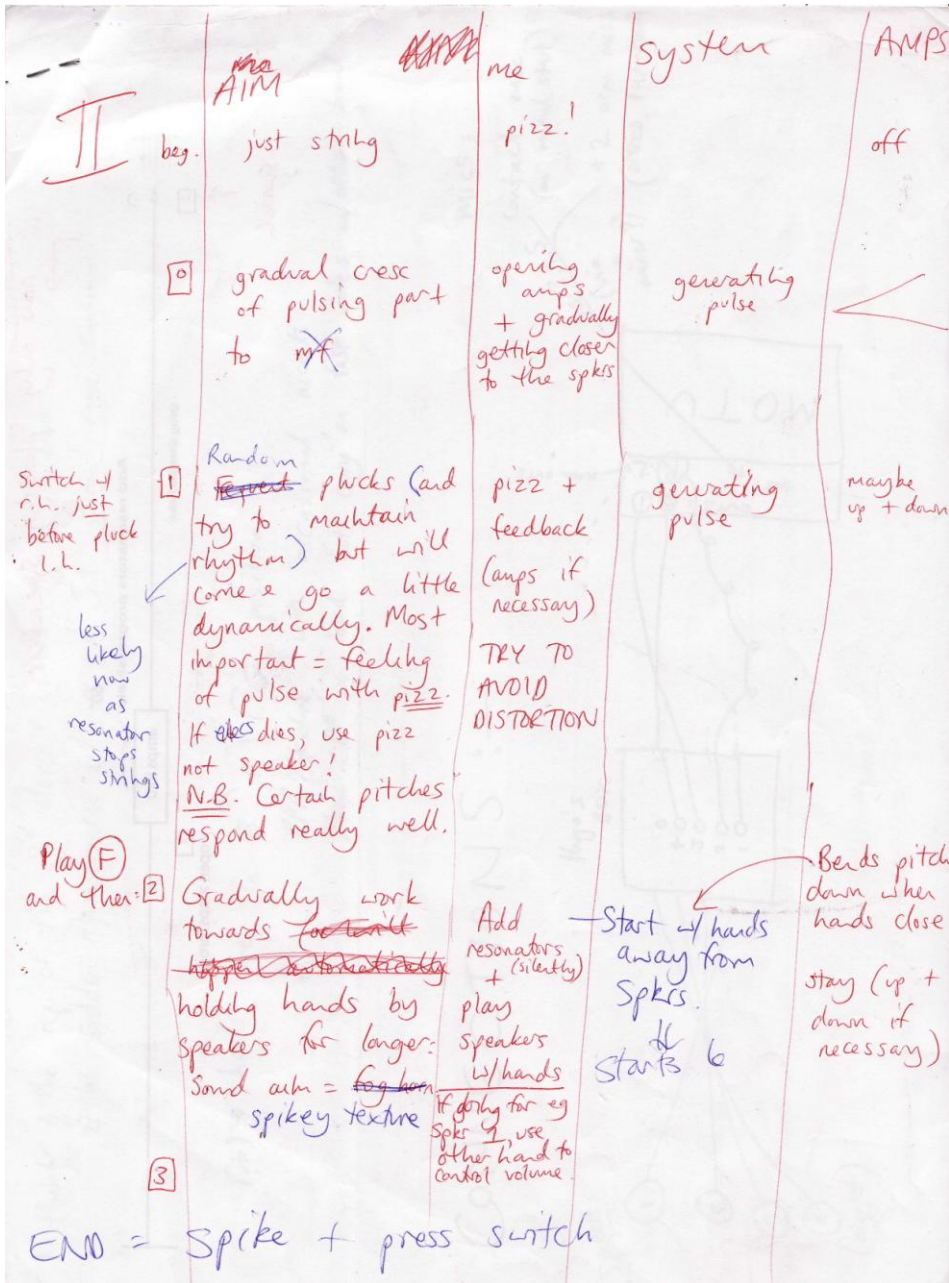 II
AIM
me
system
AMPS
beg.
just string
pizz!
off
0
gradual cresc
of pulsing part
to mf
opening
amps
+ gradually
getting closer
to the spkrs
generating
pulse
Switch w/
r.h. just
before pluck
l.h.
1
Random
Frequent plucks (and
try to maintain
rhythm) but will
come & go a little
dynamically. Most
important = feeling
of pulse with pizz.
If dies, use pizz
not speaker!
N.B. Certain pitches
respond really well.
less
likely
now
as
resonator
stops
strings
pizz +
feedback
(amps if
necessary)
TRY TO
AVOID
DISTORTION
generating
pulse
maybe
up + down
Play F
and then:
2
Gradually work
towards
happen automatically
holding hands by
speakers for longer:
Sound aim = fog horn
spikey texture
Add
resonators
+ (silently)
play
speakers
w/hands
If going for eg
Spkr 1, use
other hand to
control volume.
Start w/ hands
away from
Spkrs.
Starts 6
Bends pitch
down when
hands close
stay (up +
down if
necessary)
3
END = Spike + press switch